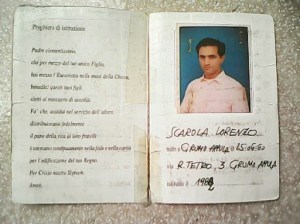 Preghiera di istituzione
Padre clementissimo,
che per mezzo del tuo unico Figlio,
hai messo l'Eucaristia nelle mani della Chiesa,
benedici questi tuoi figli
eletti al ministero di accoliti.
Fa' che, assidui nel servizio dell'altare
distribuiscano fedelmente
il pane della vita ai loro fratelli
e crescano continuamente nella fede e nella carità
per l'edificazione del tuo Regno.
Per Cristo nostro Signore.
Amen.
SCAROLA LORENZO
nato a GRUMO APPULA il
via R. TETRO, 3 GRUMO APPULA
istituito il